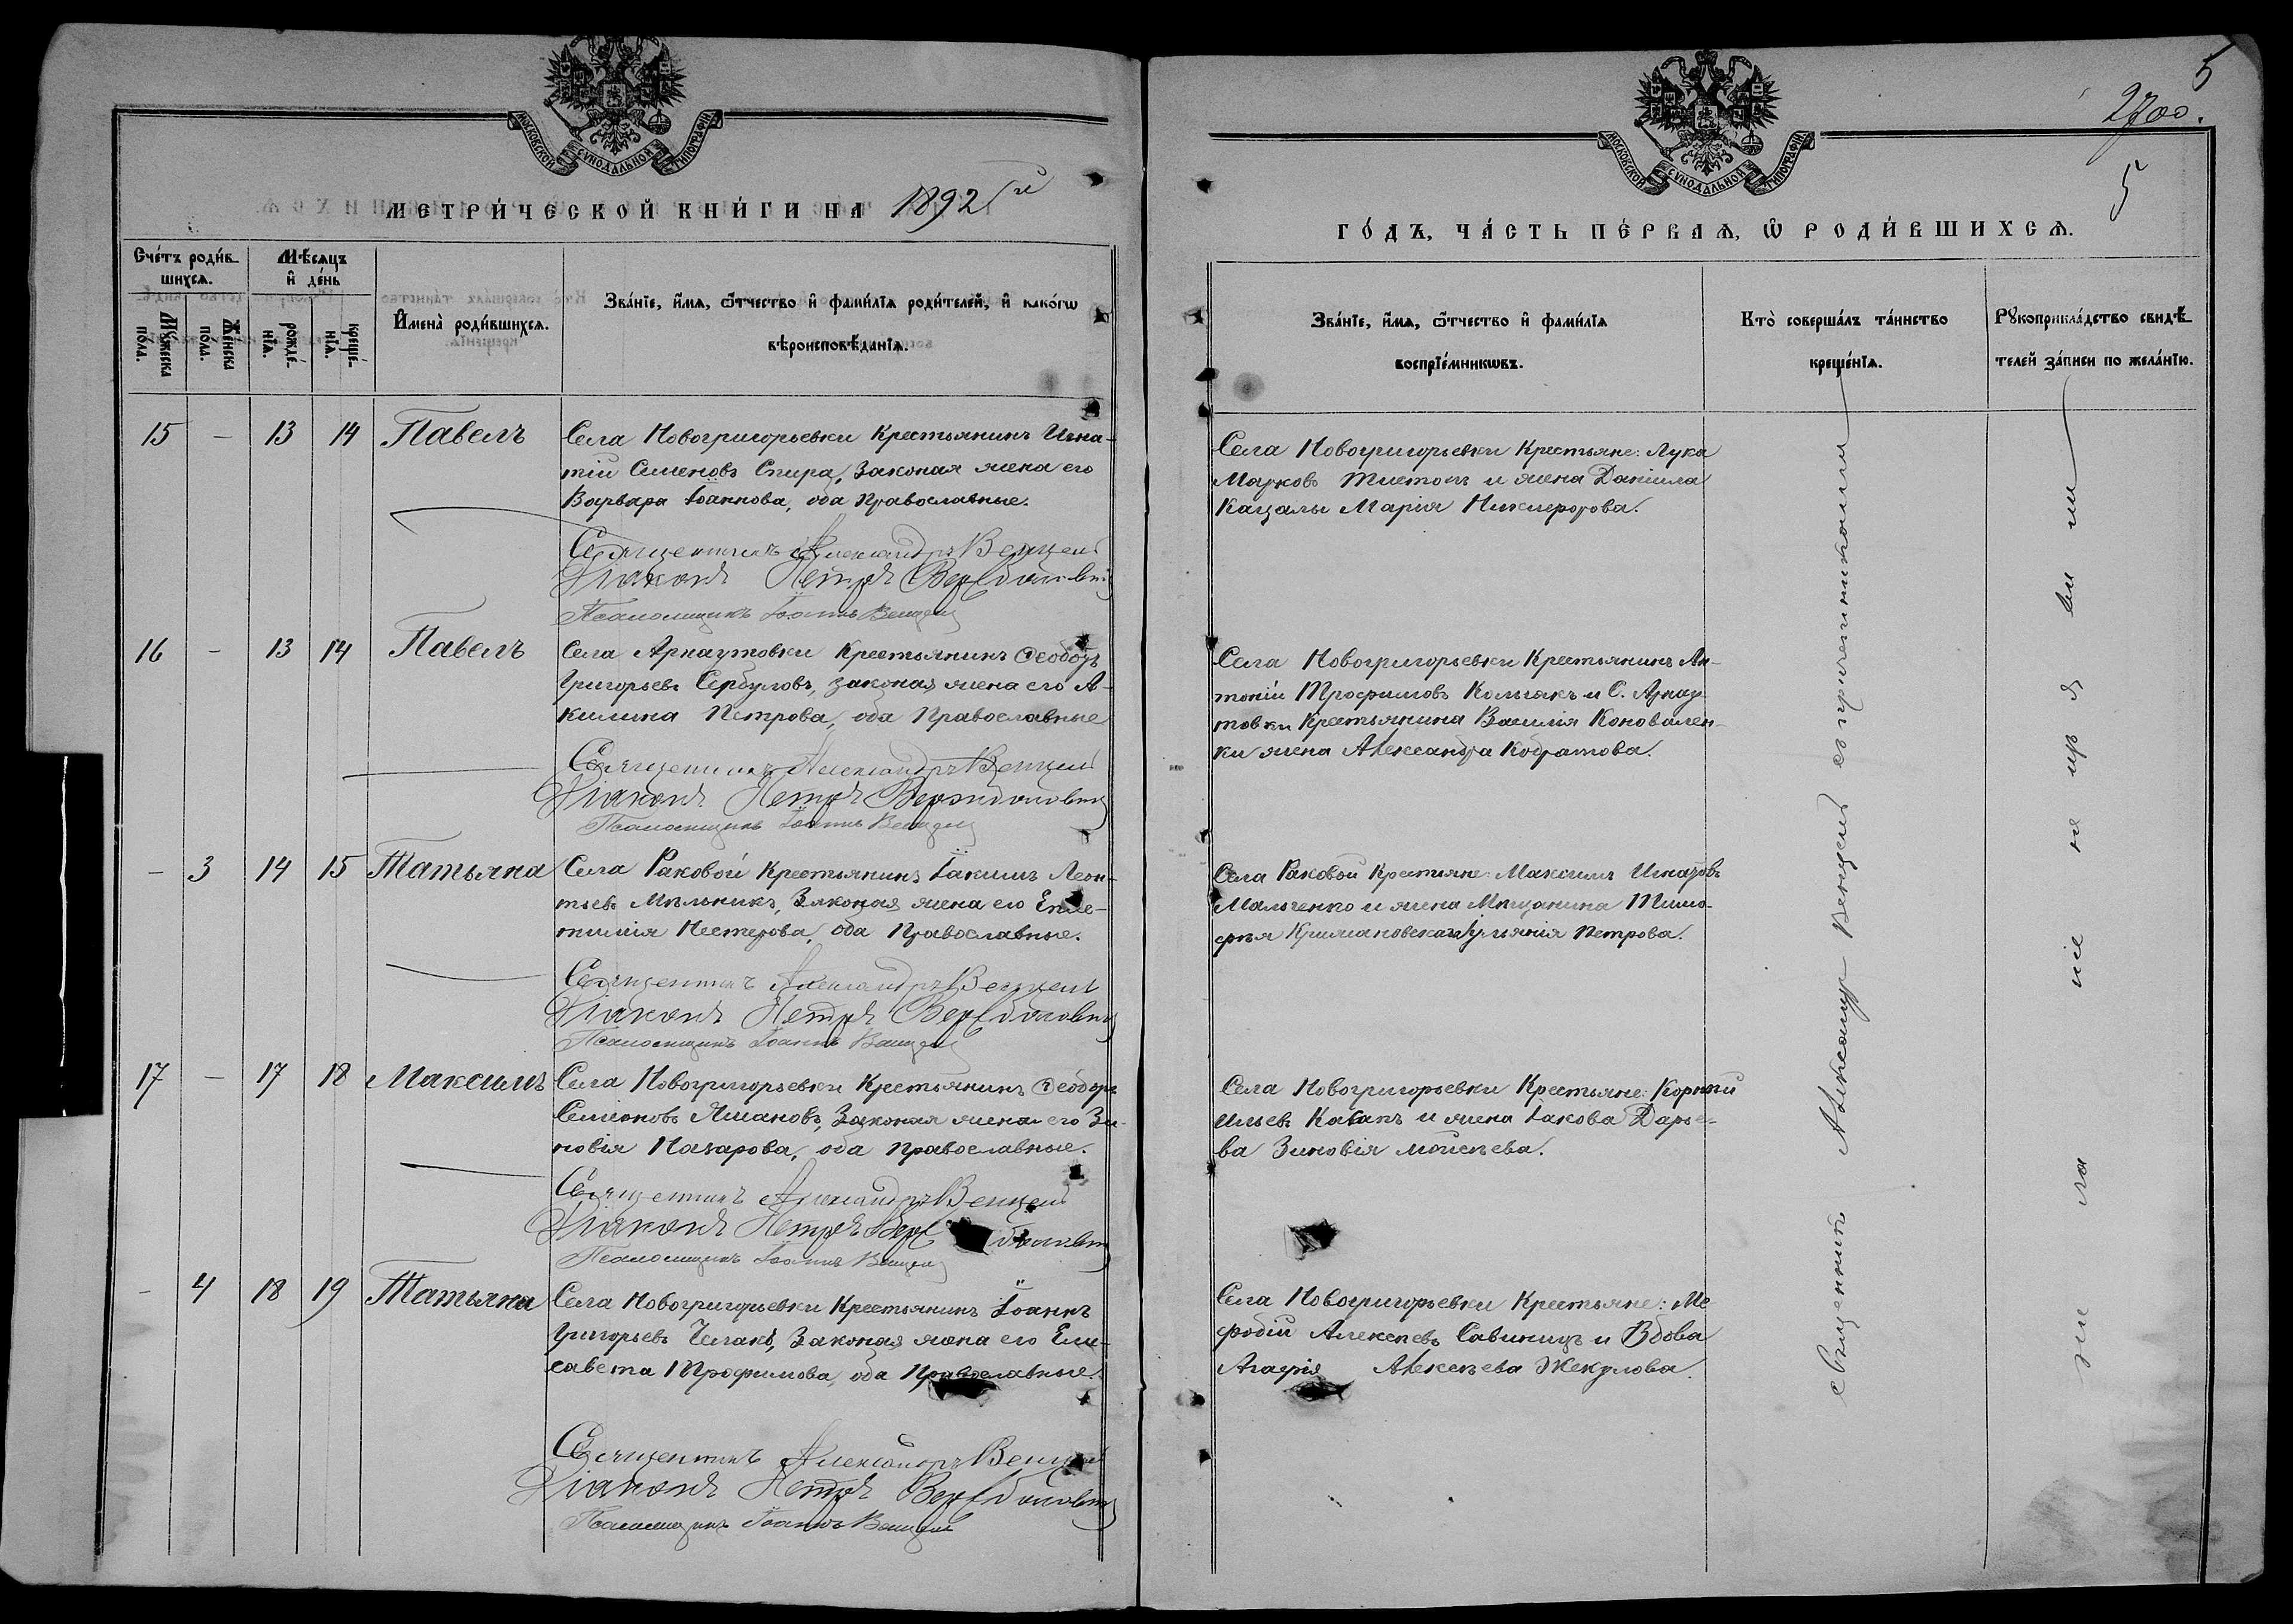 МОСКОВСКОЙ СѴНОДАЛЬНОЙ ТИПОГРАФІИ
МЕТРИ́ЧЕСКОЙ КНИ́ГИ НА 1892 й
Сче́тъ роди́в-
шихсѧ.
Мѣсѧцъ
и҆ де́нь
Мꙋ́жеска
по́ла.
Же́нска
по́ла.
рожде́-
нїѧ.
креще́-
нїѧ.
И҆мена̀ роди́вшихсѧ.
Зва́нїе, и҆́мѧ, ѻ҆́тчество и҆ фами́лїѧ роди́телей, и҆ како́гѡ
вѣроисповѣ́данїѧ.
15 – 13 14 Павелъ
Села Новогригорьевки Крестьянинъ Игна-
тій Семеновъ Спира, Законая жена его
Варвара Іоаннова, оба Православные.
Священникъ Александръ Венцель
Діаконъ Петръ
Псаломщикъ Іоаннъ Венцель
16 – 13 14 Павелъ
Села Арнаутовки Крестьянинъ Ѳеодотъ
Григорьевъ Сербуловъ, законая жена его А-
килина Петрова, оба Православные
Священникъ Александръ Венцель
Діаконъ Петръ
Псаломщикъ Іоаннъ Венцель
– 3 14 15 Татьяна
Села Раковой Крестьянинъ Іакимъ Леон-
тьевъ Мѣльникъ, Законая жена его
Нестерова, оба Православные.
Священникъ Александръ Венцель
Діаконъ Петръ
Псаломщикъ Іоаннъ Венцель
17 – 17 18 Максимъ
Села Новогригорьевки Крестьянинъ Ѳеодоръ
Семеновъ Лимановъ, Законая жена его Зи-
новія Назарова, оба православные.
Священникъ Александръ Венцель
Діаконъ Петръ
Псаломщикъ Іоаннъ Венцель
– 4 18 19 Татьяна
Села Новогригорьевки Крестьянинъ Іоаннъ
Григорьевъ Чегакъ, Законая жена его Ели-
савета Трофимова, оба Православные.
Священникъ Александръ Венцель
Діаконъ Петръ
Псаломщикъ Іоаннъ Венцель
5
2700.
5
МОСКОВСКОЙ СѴНОДАЛЬНОЙ ТИПОГРАФІИ
ГО́ДЪ, ЧА́СТЬ ПЕ́РВАѦ, Ѡ҆ РОДИ́ВШИХСѦ.
Зва́нїе, и҆́мѧ, ѻ҆́тчество и҆ фами́лїѧ
воспрїе́мникѡвъ.
Кто̀ соверша́лъ та́инство
креще́нїѧ.
Рꙋкоприкла́дство свидѣ́-
телей за́писи по жела́нїю.
Села Новогригорьевки Крестьяне: Лука
Марковъ и жена Даніила
Кацалы Марія Никифорова.
Села Новогригорьевки Крестьянинъ Ан-
тоній Трофимовъ Колчакъ и С. Арнау-
товки Крестьянина Василія Коновален-
ки жена Александра Кодратова.
Села Раковой Крестьяне: Максимъ Игнатовъ
Мальченко и жена Мѣщанина Тимо-
фея Петрова.
Села Новогригорьевки Крестьяне: Корній
Ильевъ Кацапъ и жена Іакова Дарье-
ва Зиновія моисеева.
Села Новогригорьевки Крестьяне: Ме
фодій Алексеевъ Савиницъ и Вдова
Агафія Алексеева Жекулова.
священникъ Александръ Венцель съ причетниками